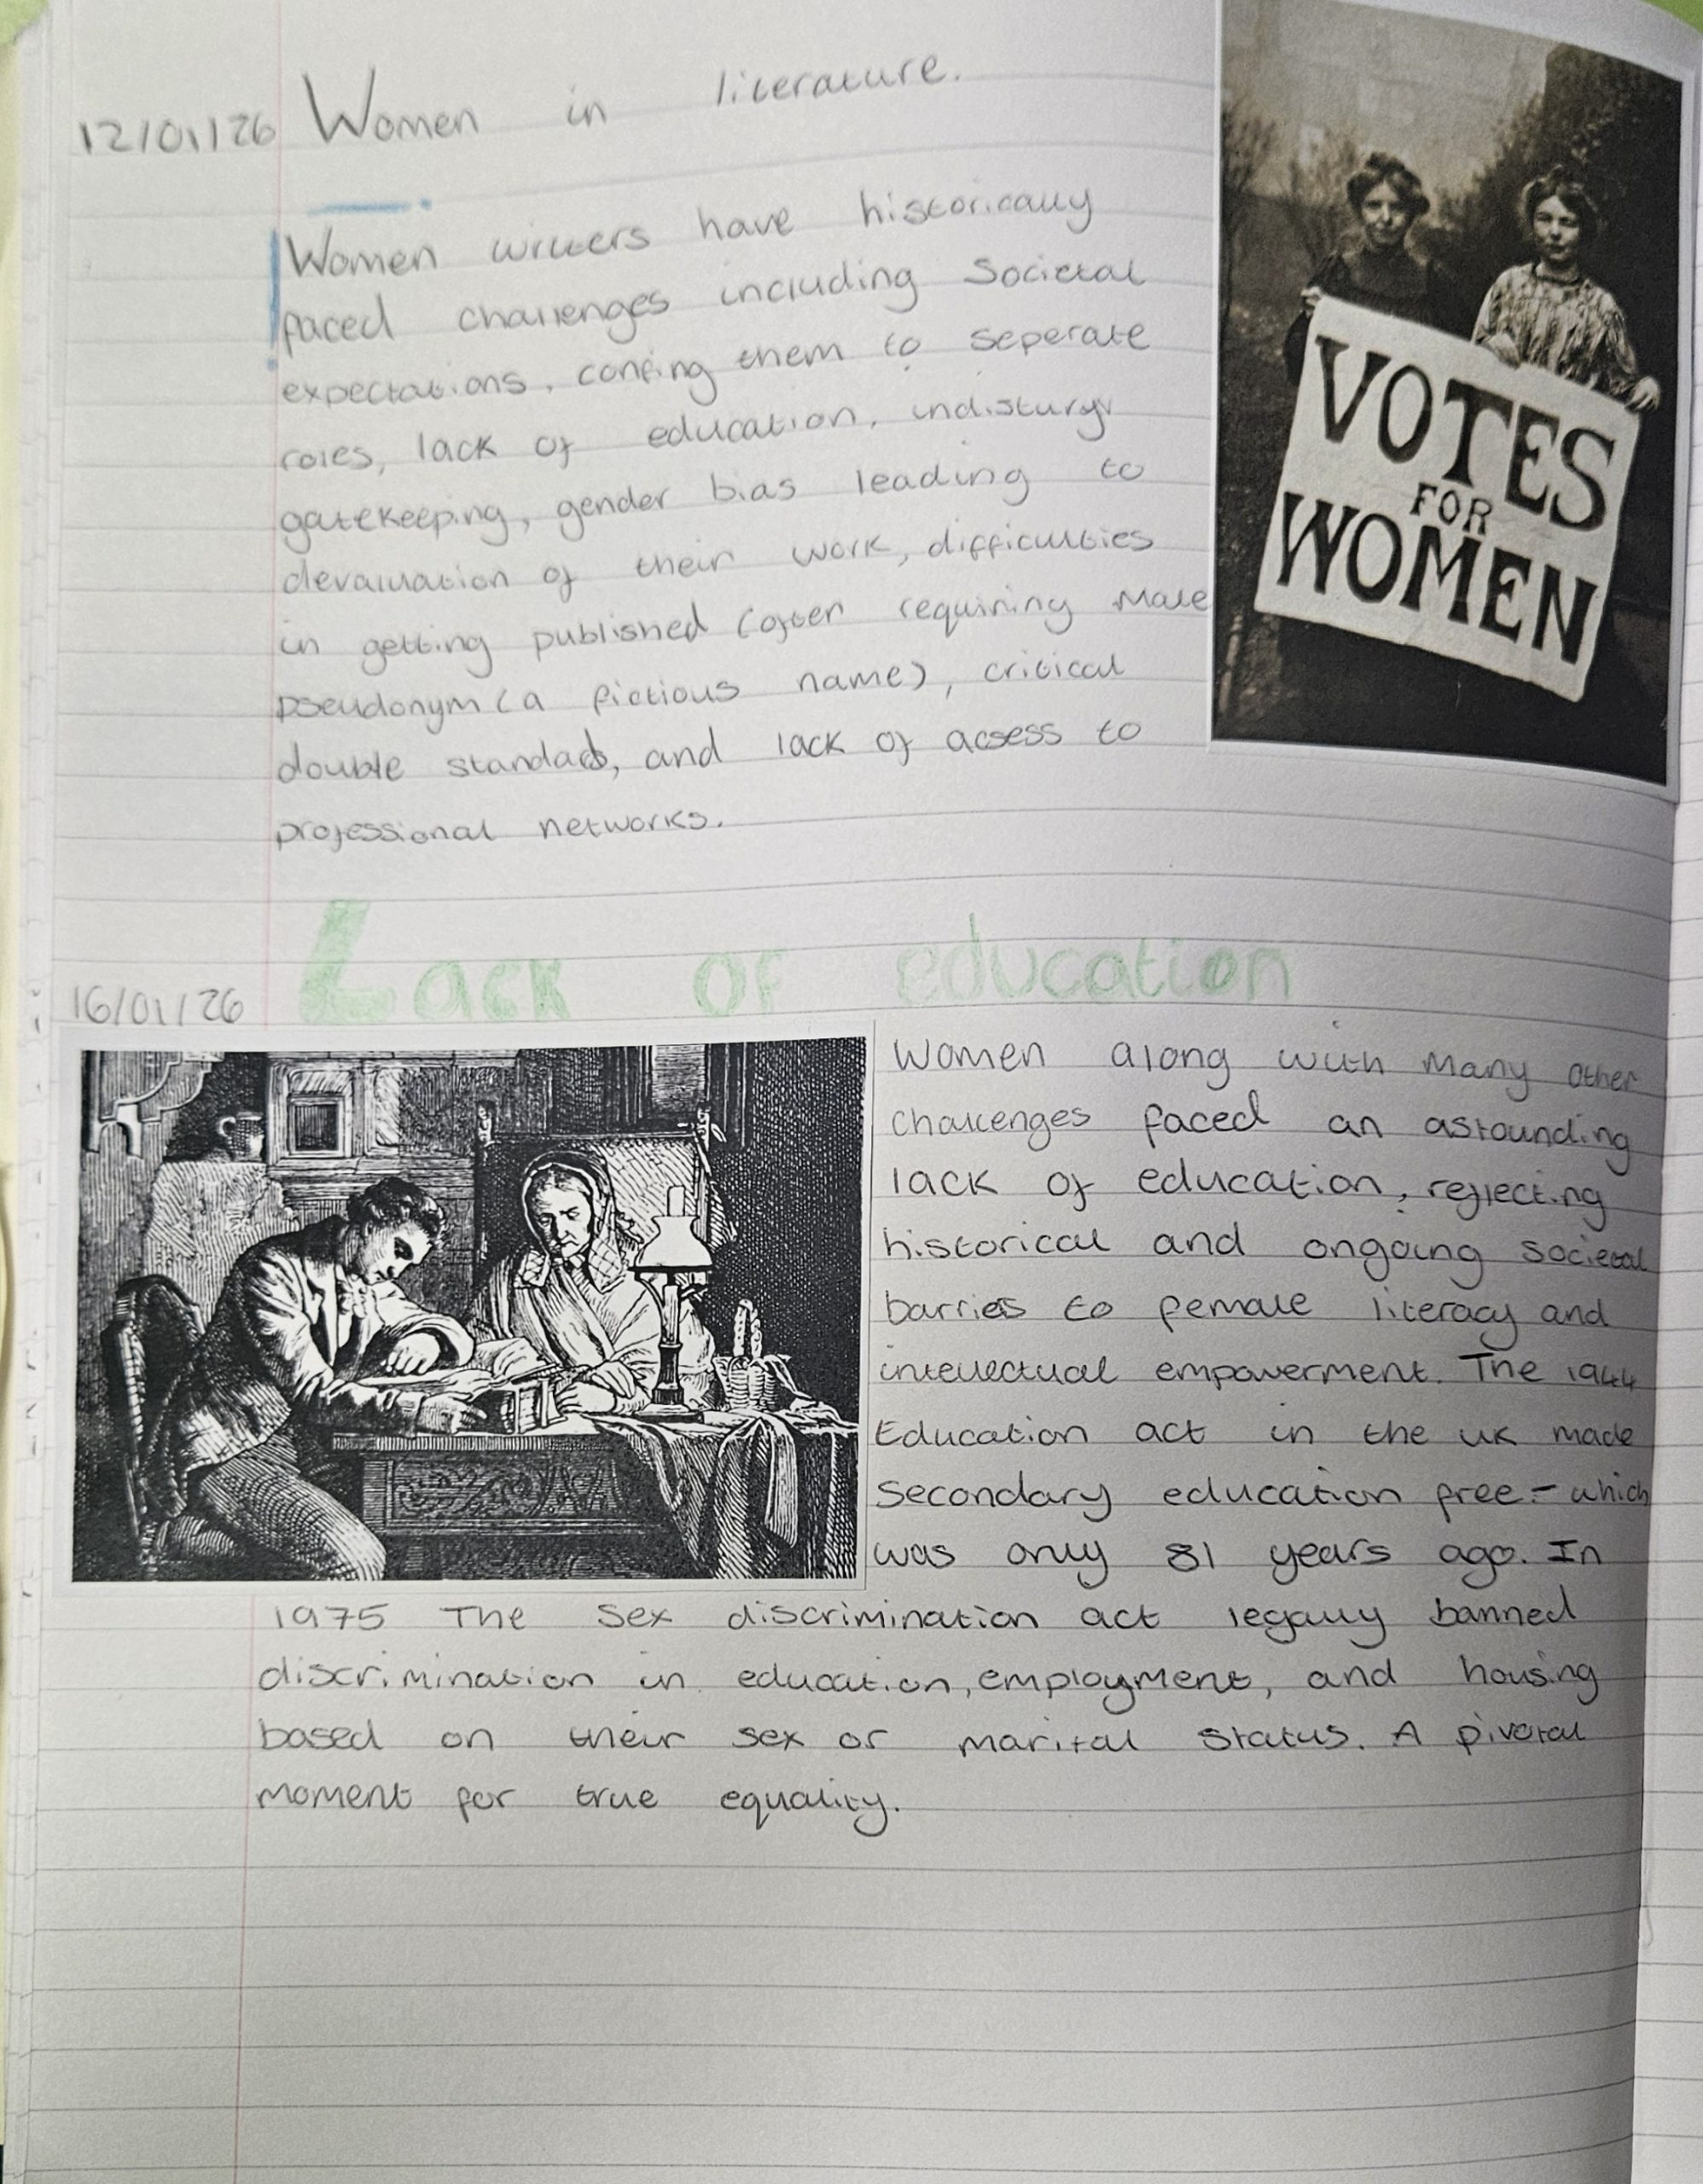 12/01/26 Women in literature.
Women writers have historically
faced challenges including Societal
expectations, confing them to seperate
roles, lack of education, indisturyr
gatekeeping, gender bias leading to
devaluation of their work, difficulties
in getting published (often requiring Male
pseudonym (a fictious name), critical
double standads, and lack of acsess to
professional networks.
VOTES
FOR
WOMEN
16/01/26 Lack of education
Women along with Many other
challenges faced an astounding
lack of education, reflecting
historical and ongoing societal
barries to female literacy and
intellectual empowerment. The 1944
Education act in the UK made
Secondary education free - which
was only 81 years ago. In
1975 The Sex discrimination act legally banned
discrimination in education, employment, and housing
based on their sex or marital status. A pivotal
moment for true equality.